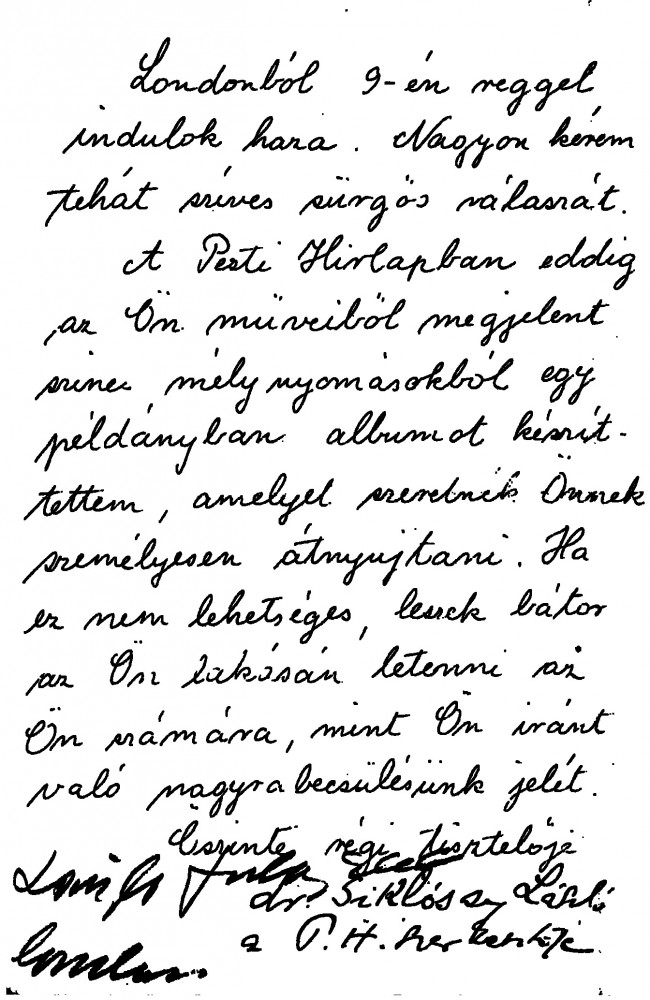 Londonból 9-én reggel
indulok haza. Nagyon kérem
tehát szíves sürgős válaszát.
A Pesti Hirlapban eddig
az Ön műveiből megjelent
szines mélynyomásokból egy
példányban albumot készít-
tettem, amelyet szeretnék Önnek
személyesen átnyujtani. Ha
ez nem lehetséges, leszek bátor
az Ön lakásán letenni az
Ön számára, mint Ön iránt
való nagyrabecsülésünk jelét.
Őszinte régi tisztelője
dr. Siklóssy László
a P. H. szerkesztője